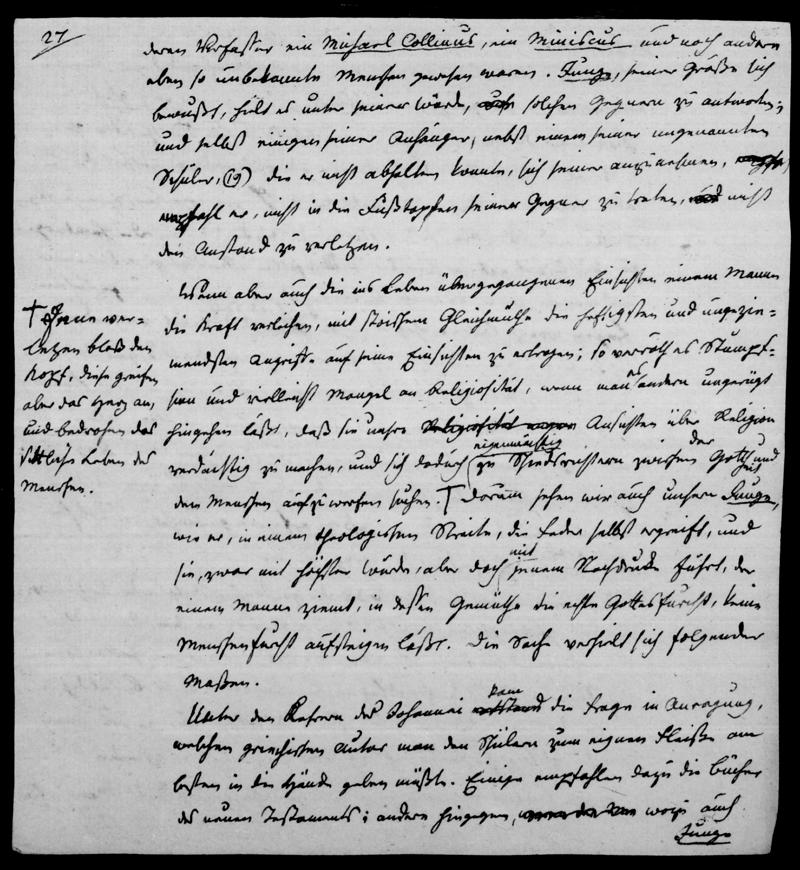 27
deren Verfasser ein Michael Collinus, ein Miniscus und noch andere
eben so unbekannte Menschen gewesen waren. Junge, seiner Größe sich
bewußt, hielt es unter seiner Würde, solchen Gegnern zu antworten;
und selbst einigen seiner Anhänger, nebst einem seiner ungenannten
Schüler, (19) die er nicht abhalten konnte, sich seiner anzunehmen,
empfahl er, nicht in die Fußtapfen seiner Gegner zu treten, nicht
den Anstand zu verletzen.
Wenn aber auch die ins Leben übergegangenen Einsichten einem Manne
die Kraft verleihen, mit stoischem Gleichmuthe die heftigsten und ungezie-
mendsten Angriffe auf seine Einsichten zu ertragen; so verräth es Stumpf-
sinn und vielleicht Mangel an Religiosität, wenn man es andern ungerügt
hingehen läßt, daß sie unsre Religiosität Ansichten über Religion
verdächtig zu machen, und sich dadurch eigenmächtig zu Schiedsrichtern zwischen der Gottheit und
dem Menschen aufzuwerfen suchen. † Darum sehen wir auch unsern Junge,
wie er, in einem theologischen Streite, die Feder selbst ergreift, und
sie, zwar mit höchster Würde, aber doch mit jenem Nachdrucke führt, der
einem Manne ziemt, in dessen Gemüthe die echte Gottesfurcht, keine
Menschenfurcht aufsteigen läßt. Die Sache verhielt sich folgender
Maßen.
Unter den Lehrern des Johannei kam die Frage in Anregung,
welchen griechischen Autor man den Schülern zum eignen Fleiße am
besten in die Hände geben müßte. Einige empfahlen dazu die Bücher
des neuen Testaments; andere hingegen, wozu auch
Junge
† Jene ver-
letzen bloß den
Kopf, diese greifen
aber das Herz an,
und bedrohen das
sittliche Leben des
Menschen.